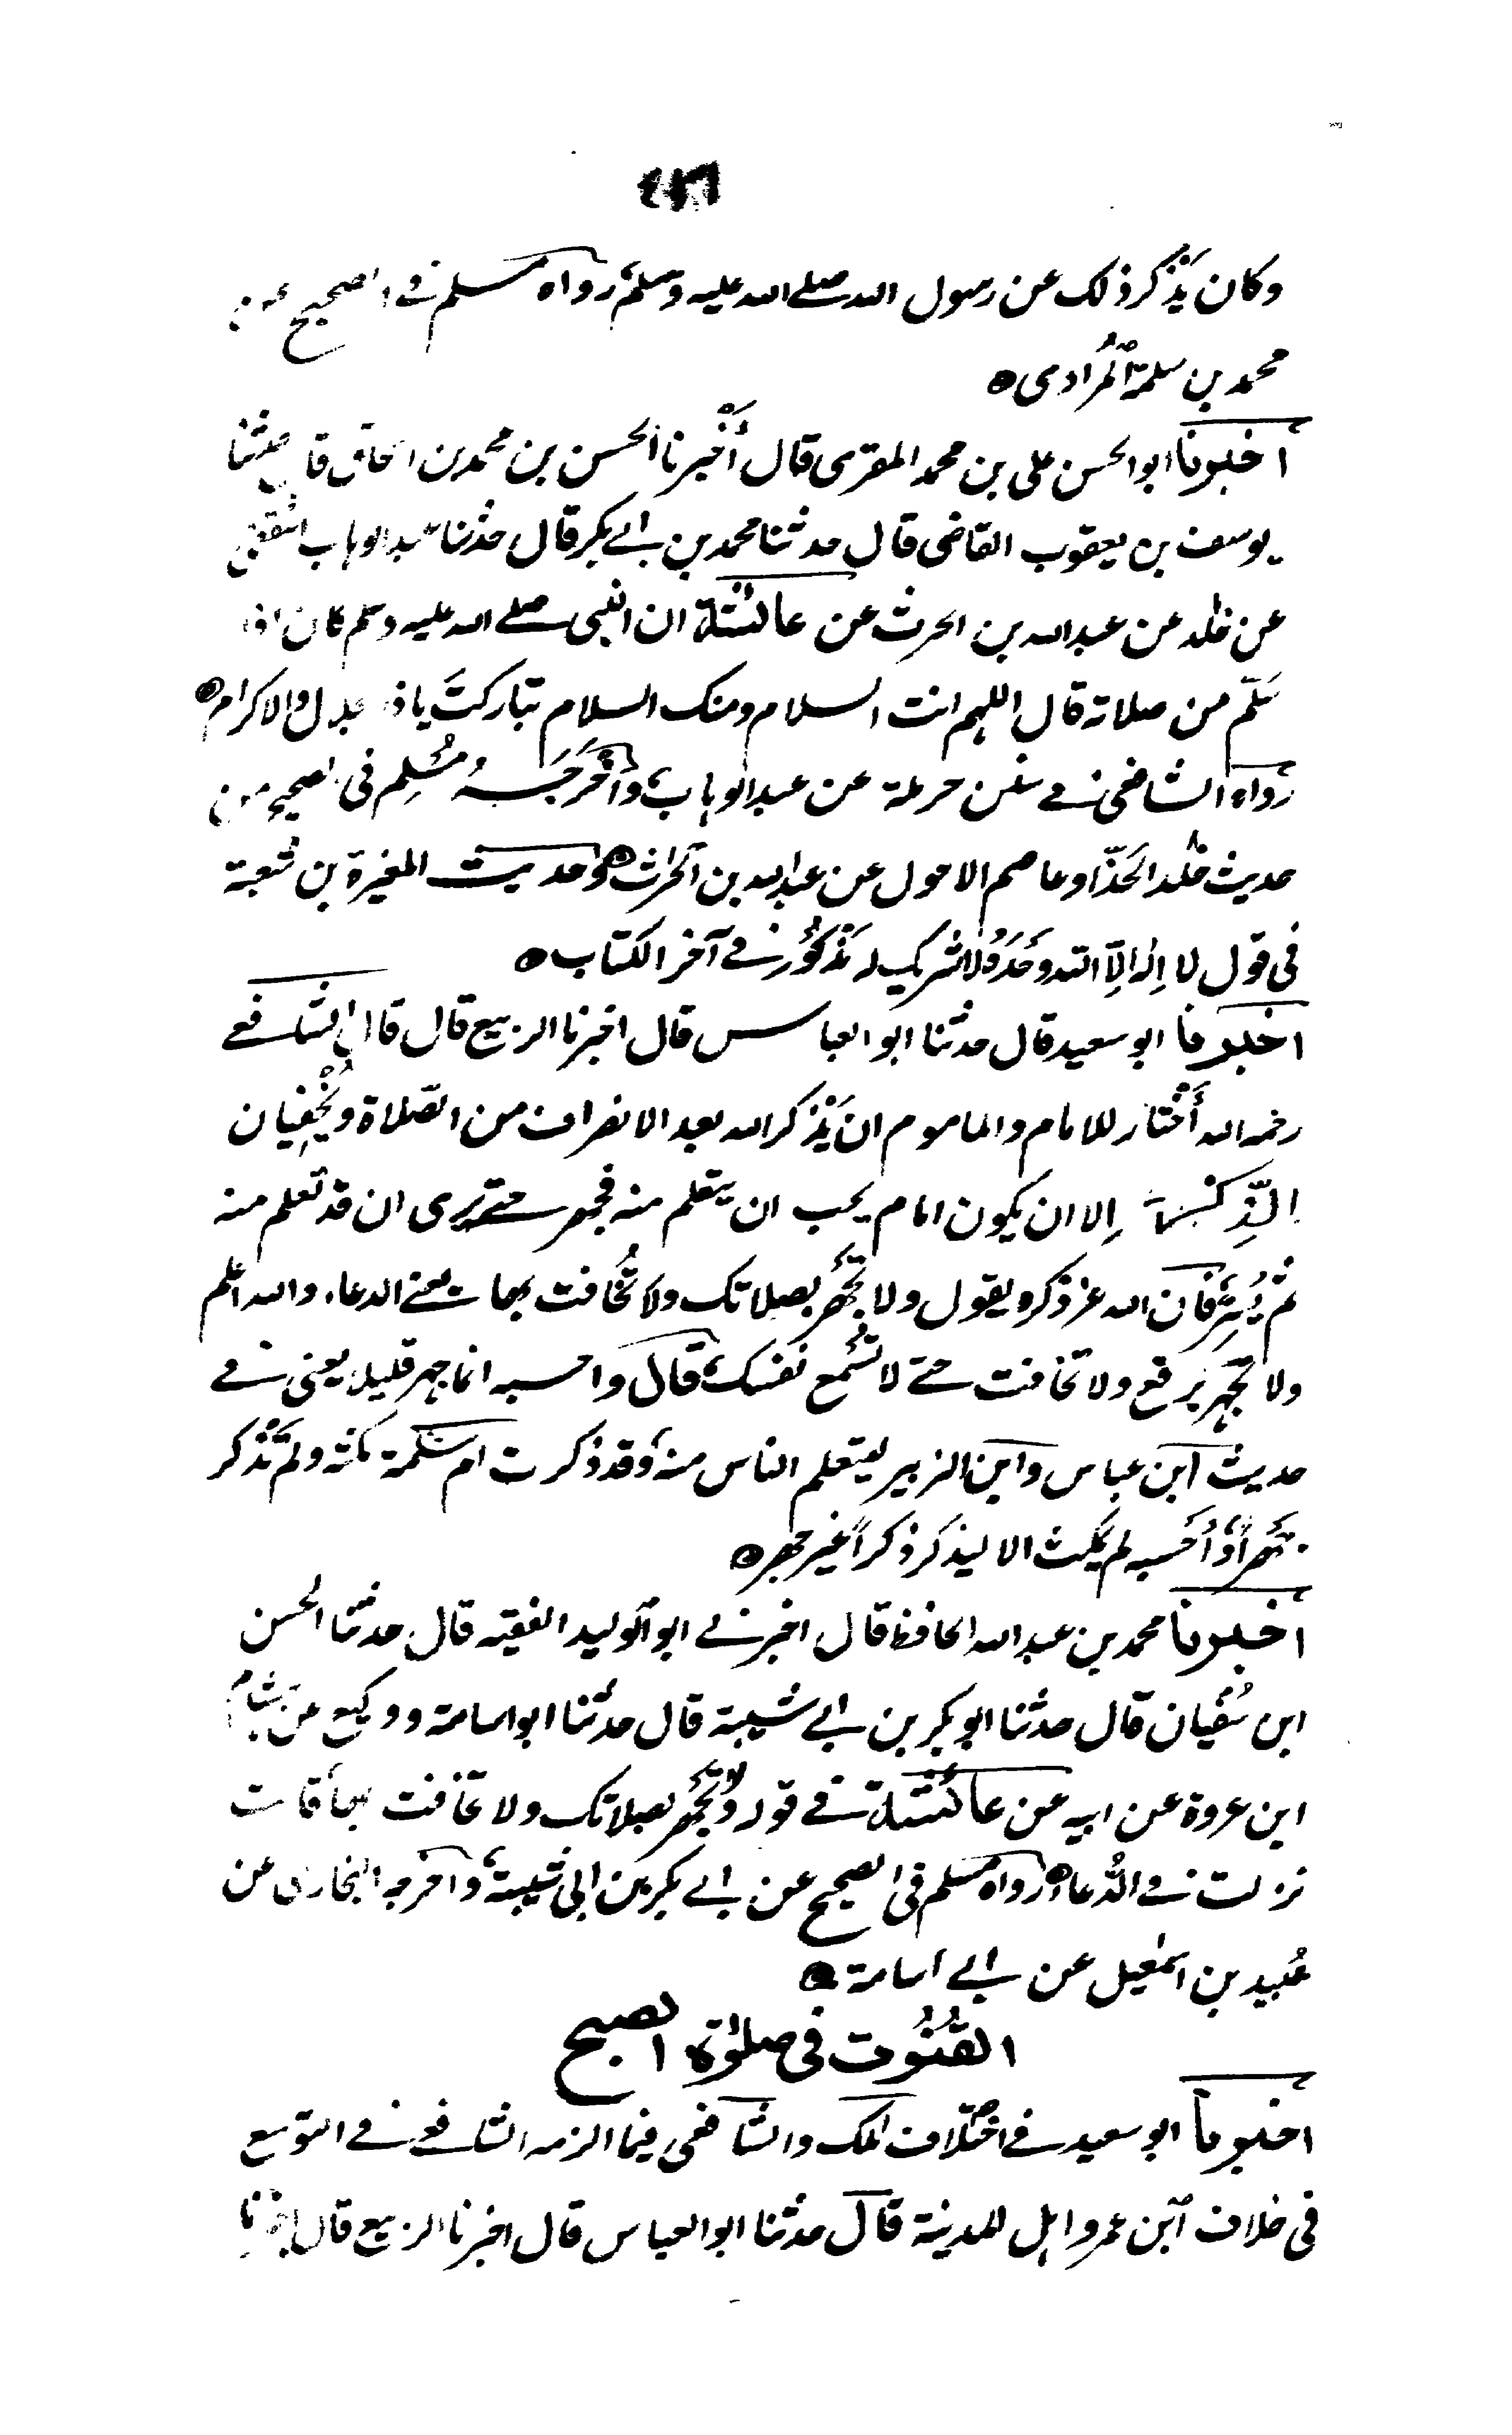 وكان يَذْكر ذلك عن رسول الله صلى الله عليه وسلم رواه مسلم في الصحيح عن
محمد بن سلمة المُرادى ٥
اخبرنا ابو الحسن على بن محمد المقرى قال أَخْبرنا الحسن بن محمد بن اسحاق قال حدثنا
يوسف بن يعقوب القاضى قال حدثنا محمد بن ابي بكر قال حدثنا عبد الوهاب الثقفى
عن خلد عن عبد الله بن الحرث عن عائشة ان النبى صلى الله عليه وسلم كان اذا
سَلّم من صلاته قال اللهم انت السلام ومنك السلام تباركتَ يا ذا الجلال والاكرام ٥
رواه الشافعى في سنن حرملة عن عبد الوهاب وأَخْرَجَهُ مُسْلِم فى الصحيح من
حديث خلد الحَذّا وعاصم الاحول عن عبد الله بن الحرث ٥ وحديث المغيرة بن شعبة
فى قول لا اِلٰه اِلّا الله وَحْدَهُ لا شريك له مَذْكُور في آخر الكتاب ٥
اخبرنا ابو سعيد قال حدثنا ابو العباس قال اخبرنا الربيع قال قال الشافعي
رحمه الله أَخْتار للامام والماموم ان يَذْكر الله بعد الانصراف من الصّلاة ويُخْفِيان
الذِّكْر اِلا ان يكون امام يحب ان يتعلم منه فيجهر حتى يرى ان قد تعلم منه
ثم يُسِرّ فان الله عز ذكره يقول ولا تَجْهر بصلاتك ولا تُخافت بها يعنى الدعاء والله اعلم
ولا تجهر ترفع ولا تخافت حتى لا تُسْمع نفسك قال واحسبه انما جهر قليلا يعنى في
حديث ابن عباس وابن الزبير ليتعلم الناس منه وقد ذكرت ام سلمة مكثه ولم تَذْكر
جَهْراً وأَحْسبه لم يمكث الا ليذكر ذكراً غير جهر ٥
اخبرنا محمد بن عبد الله الحافظ قال اخبرني ابو الوليد الفقيه قال حدثنا الحسن
ابن سُفيان قال حدثنا ابو بكر بن ابي شيبة قال حدثنا ابو اسامة ووكيع عن هشام
ابن عروة عن ابيه عن عائشة في قوله ولا تجهر بصلاتك ولا تخافت بها قالت
نزلت في الدُّعاء ٥ رواه مسلم فى الصحيح عن ابي بكر بن ابى شيبة واخرجه البخارى عن
عُبيد بن اسمٰعيل عن ابي اسامة ٥
القُنُوت فى صلٰوة الصبح
اخبرنا ابو سعيد في اختلاف ملك والشافعى فيما الزمه الشافعي في التوسع
فى خلاف ابن عمر واهل المدينة قال حدثنا ابو العباس قال اخبرنا الربيع قال اخبرنا